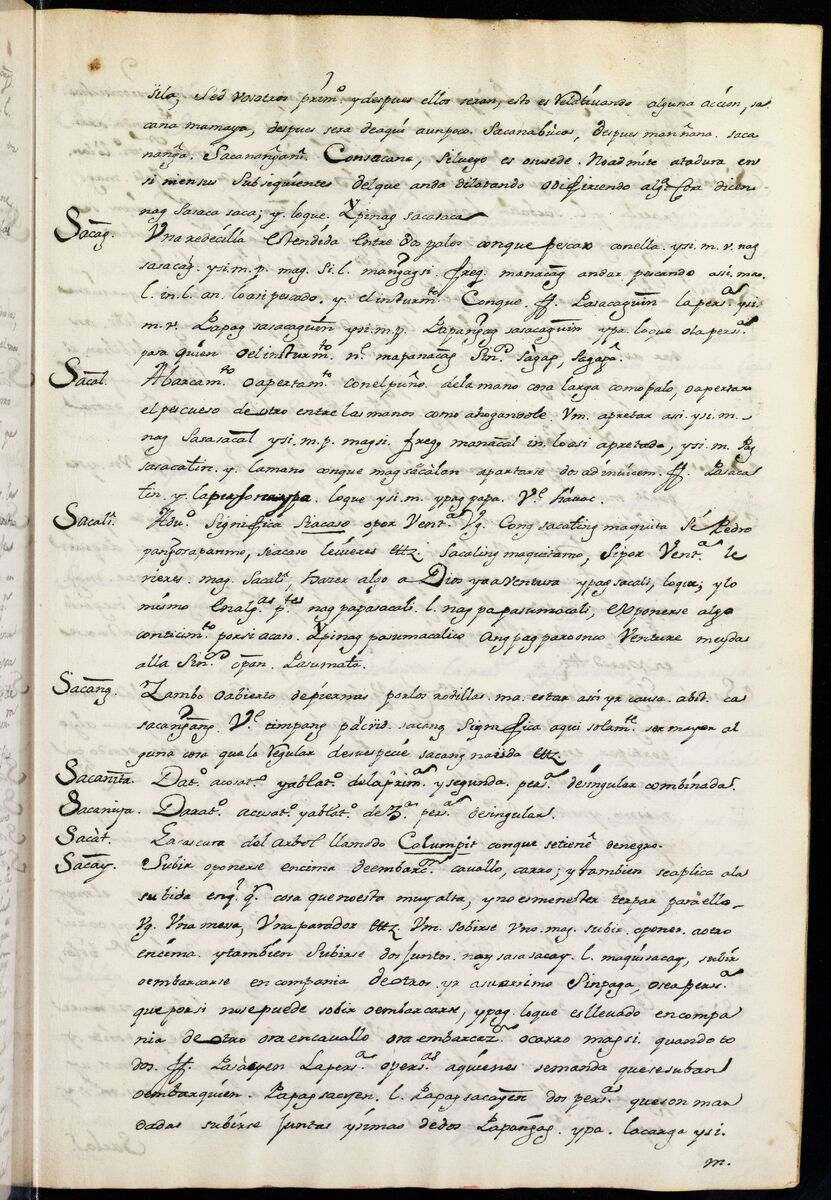 sila, sed vosotros prim.º y despues ellos seran, esto es relativando alguna accion, sa
cana mamaya, despues sera de aqui a un poco. Sacanabucas, despues mañana. saca
Consacana, si luego es o sucede. No admite atadura en
si ni en sus subsiguientes del que anda dilatando o difiriendo alg.ª cosa dicen
nag sasaca saca; y. loque. Ypinag sacasaca
Sacag. Vna redecilla estendida entre dos palos conque pescar con ella. y si. m. v. nag
sasacag. y si. m. p. mag. si. l. mangagsi. freq. manacag andar pescando asi. ma.
l. in. l. an. lo asi pescado, y. el insturm.to Conque. ff. Pasacaguin la pers.ª y si.
m. v. Papag sasacaguin y si. m. p. Papangag sasacaguin ypa. loque o la pers.ª
para quien o el insturm.to n.e mapanacag Sin.º sagap, sagapa.
Sacal. Abarcam.to o apertam.to con el puño de la mano cosa larga como palo, o apertar
el pescueso de otro entre las manos como ahogandole. Vm. apretar asi. y si. m.
nag sasasacal y si. m. p. magsi. freq. manacal in. lo asi apretado, y si. m. Pag
sasacalin. y. la mano conque mag sacalan apartarse dos ad invicem. ff. Pasaca
lin. y. la persona ypa. loque y si. m. ypag papa. V.e havac.
Sacali. Adv.º Significa siacaso o por Vent.ª Vg. Cong sacaling maquita si Pedro
siacaso le vieres ettz. sacaling maquitamo, si por Vent.ª le
vieres. mag. sacali, hazer algo a Dios y a ventura ypag sacali, loque; y lo
mismo en alg.as p.tes nag papasacali. l. nag pa pasumacali, esponerse algo
conticim.to por si acaso. Ypinag pasumacalico ang pag paroonco Venture meydas
alla Sin.º opan. Pasumala.
Sacang. Zambo o abierto de piernas por los rodillas. ma. estar asi y r causa. abid. ca
V.e timpang paciid. sacang significa aqui solam.te ser mayor al
guna cosa que lo regular de su especie sacang naiida ettz.
Sacanita. Dat.º acusat.º y ablat.º de la prim.ª y segunda. pers.ª de singular combinada.s
Sacaniya. Dat.º acusat.º y ablat.º de 3.ª pers.ª de singular.
Sacat. La cascara del arbol llamodo Calumpit conque se tiene de negro.
Sacay. Subir o ponerse encima de embarc.on cavallo, carro; y tambien se aplica a la
subida en q.e q.r cosa que no esta muy alta, y no es menester trepar para ello.
Vg. Vna mesa, Vn aparador ettz. Vm. sobirse vno. mag. subir. o poner. a otro
encima. y tambien subirse dos juntos. nag sasasacay. l. maquisacay, subir
o embarcarse en compania de otros. y r a su arrimo sin paga, o sea pers.ª
que por si no se puede sobir o embarcarse, y pag. loque es llevado en compa
nia de otro ora en cavallo ora embarcaz.on o carro magsi. quando to
dos. ff. Pasacyen la pers.ª o pers.as a quienes se manda que se suban
o embarquen. Papag sacyen. l. Papag sacayen dos pers.as que son man
dadas subirse juntas y si mas de dos Papangag. ypa. la carga y si.
m.